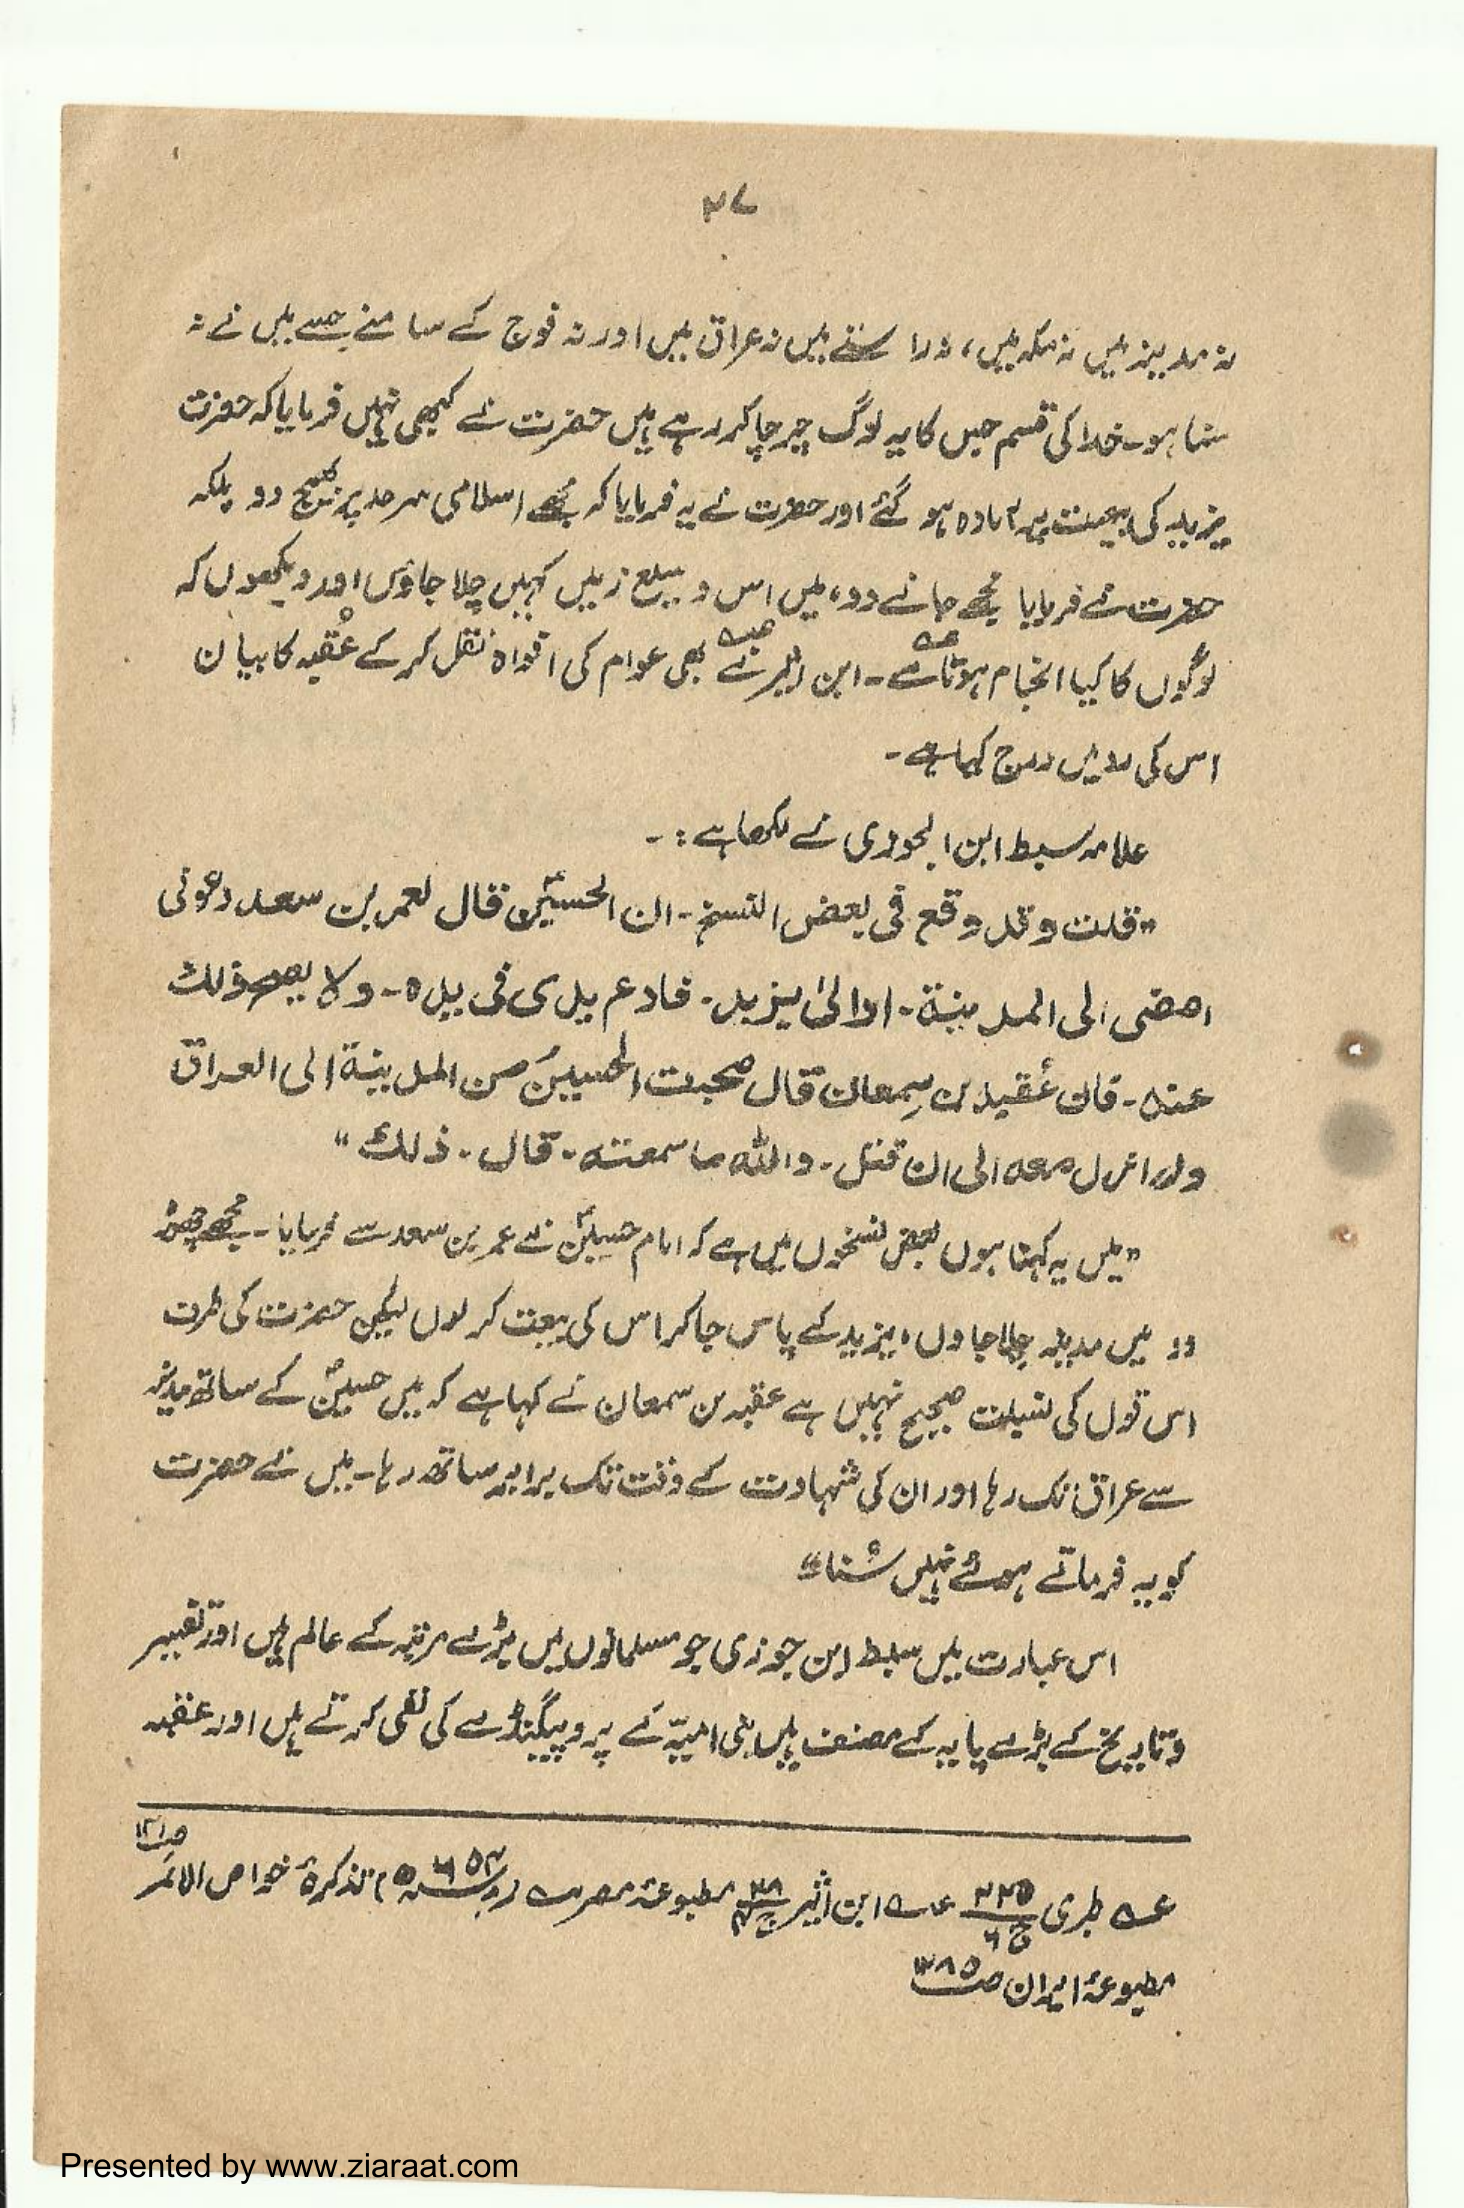 ۳۷
نہ مدینہ میں نہ مکہ میں، نہ راستے میں نہ عراق میں اور نہ فوج کے سامنے جسے میں نے نہ
سنا ہو۔ خدا کی قسم جس کا یہ لوگ چرچا کر رہے ہیں حضرت نے کبھی نہیں فرمایا کہ حضرت
یزید کی بیعت پہ آمادہ ہو گئے اور حضرت نے یہ فرمایا کہ مجھے اسلامی سرحد پر بھیج دو بلکہ
حضرت نے فرمایا مجھے جانے دو، میں اس وسیع زمیں کہیں چلا جاؤں اور دیکھوں کہ
لوگوں کا کیا انجام ہوتا ہے۔ ابن اثیر نے بھی عوام کی افواہ نقل کر کے عُقبہ کا بیان
اس کی رد میں درج کیا ہے۔
علامہ سبط ابن الجوزی نے لکھا ہے:۔
"قلت وقد وقع فی بعض النسخ۔ ان الحسینؑ قال لعمر بن سعد دعونی
امضی الی المدینة۔ اوالیٰ یزید۔ فادع یدی فی یدہ۔ ولا یصح ذلك
عنہ۔ فان عُقبہ بن سِمعان قال صحبت الحسینؑ من المدینة الی العراق
ولم ازل معہ الی ان قتل۔ واللہ ما سمعتہ۔ قال۔ ذلك"
"میں یہ کہتا ہوں بعض نسخوں میں ہے کہ امام حسینؑ نے عمر بن سعد سے فرمایا۔ مجھے چھوڑ
دو میں مدینہ چلا جاوں، یزید کے پاس جا کر اس کی بیعت کر لوں لیکن حضرت کی طرف
اس قول کی نسبت صحیح نہیں ہے عقبہ بن سمعان نے کہا ہے کہ میں حسینؑ کے ساتھ مدینہ
سے عراق تک رہا اور ان کی شہادت کے وقت تک برابر ساتھ رہا۔ میں نے حضرت
کو یہ فرماتے ہوئے نہیں سُنا"
اس عبارت میں سبط ابن جوزی جو مسلمانوں میں بڑے مرتبہ کے عالم ہیں اور تفسیر
و تاریخ کے بڑے پایہ کے مصنف ہیں بنی امیہّ کے پروپیگنڈے کی نفی کرتے ہیں اور عقبہ
عہ طبری ۲۲۵ ج ۶ عہ ابن اثیر مطبوعۂ مصر تذکرۂ خواص الائمہ
مطبوعۂ ایران
Presented by www.ziaraat.com